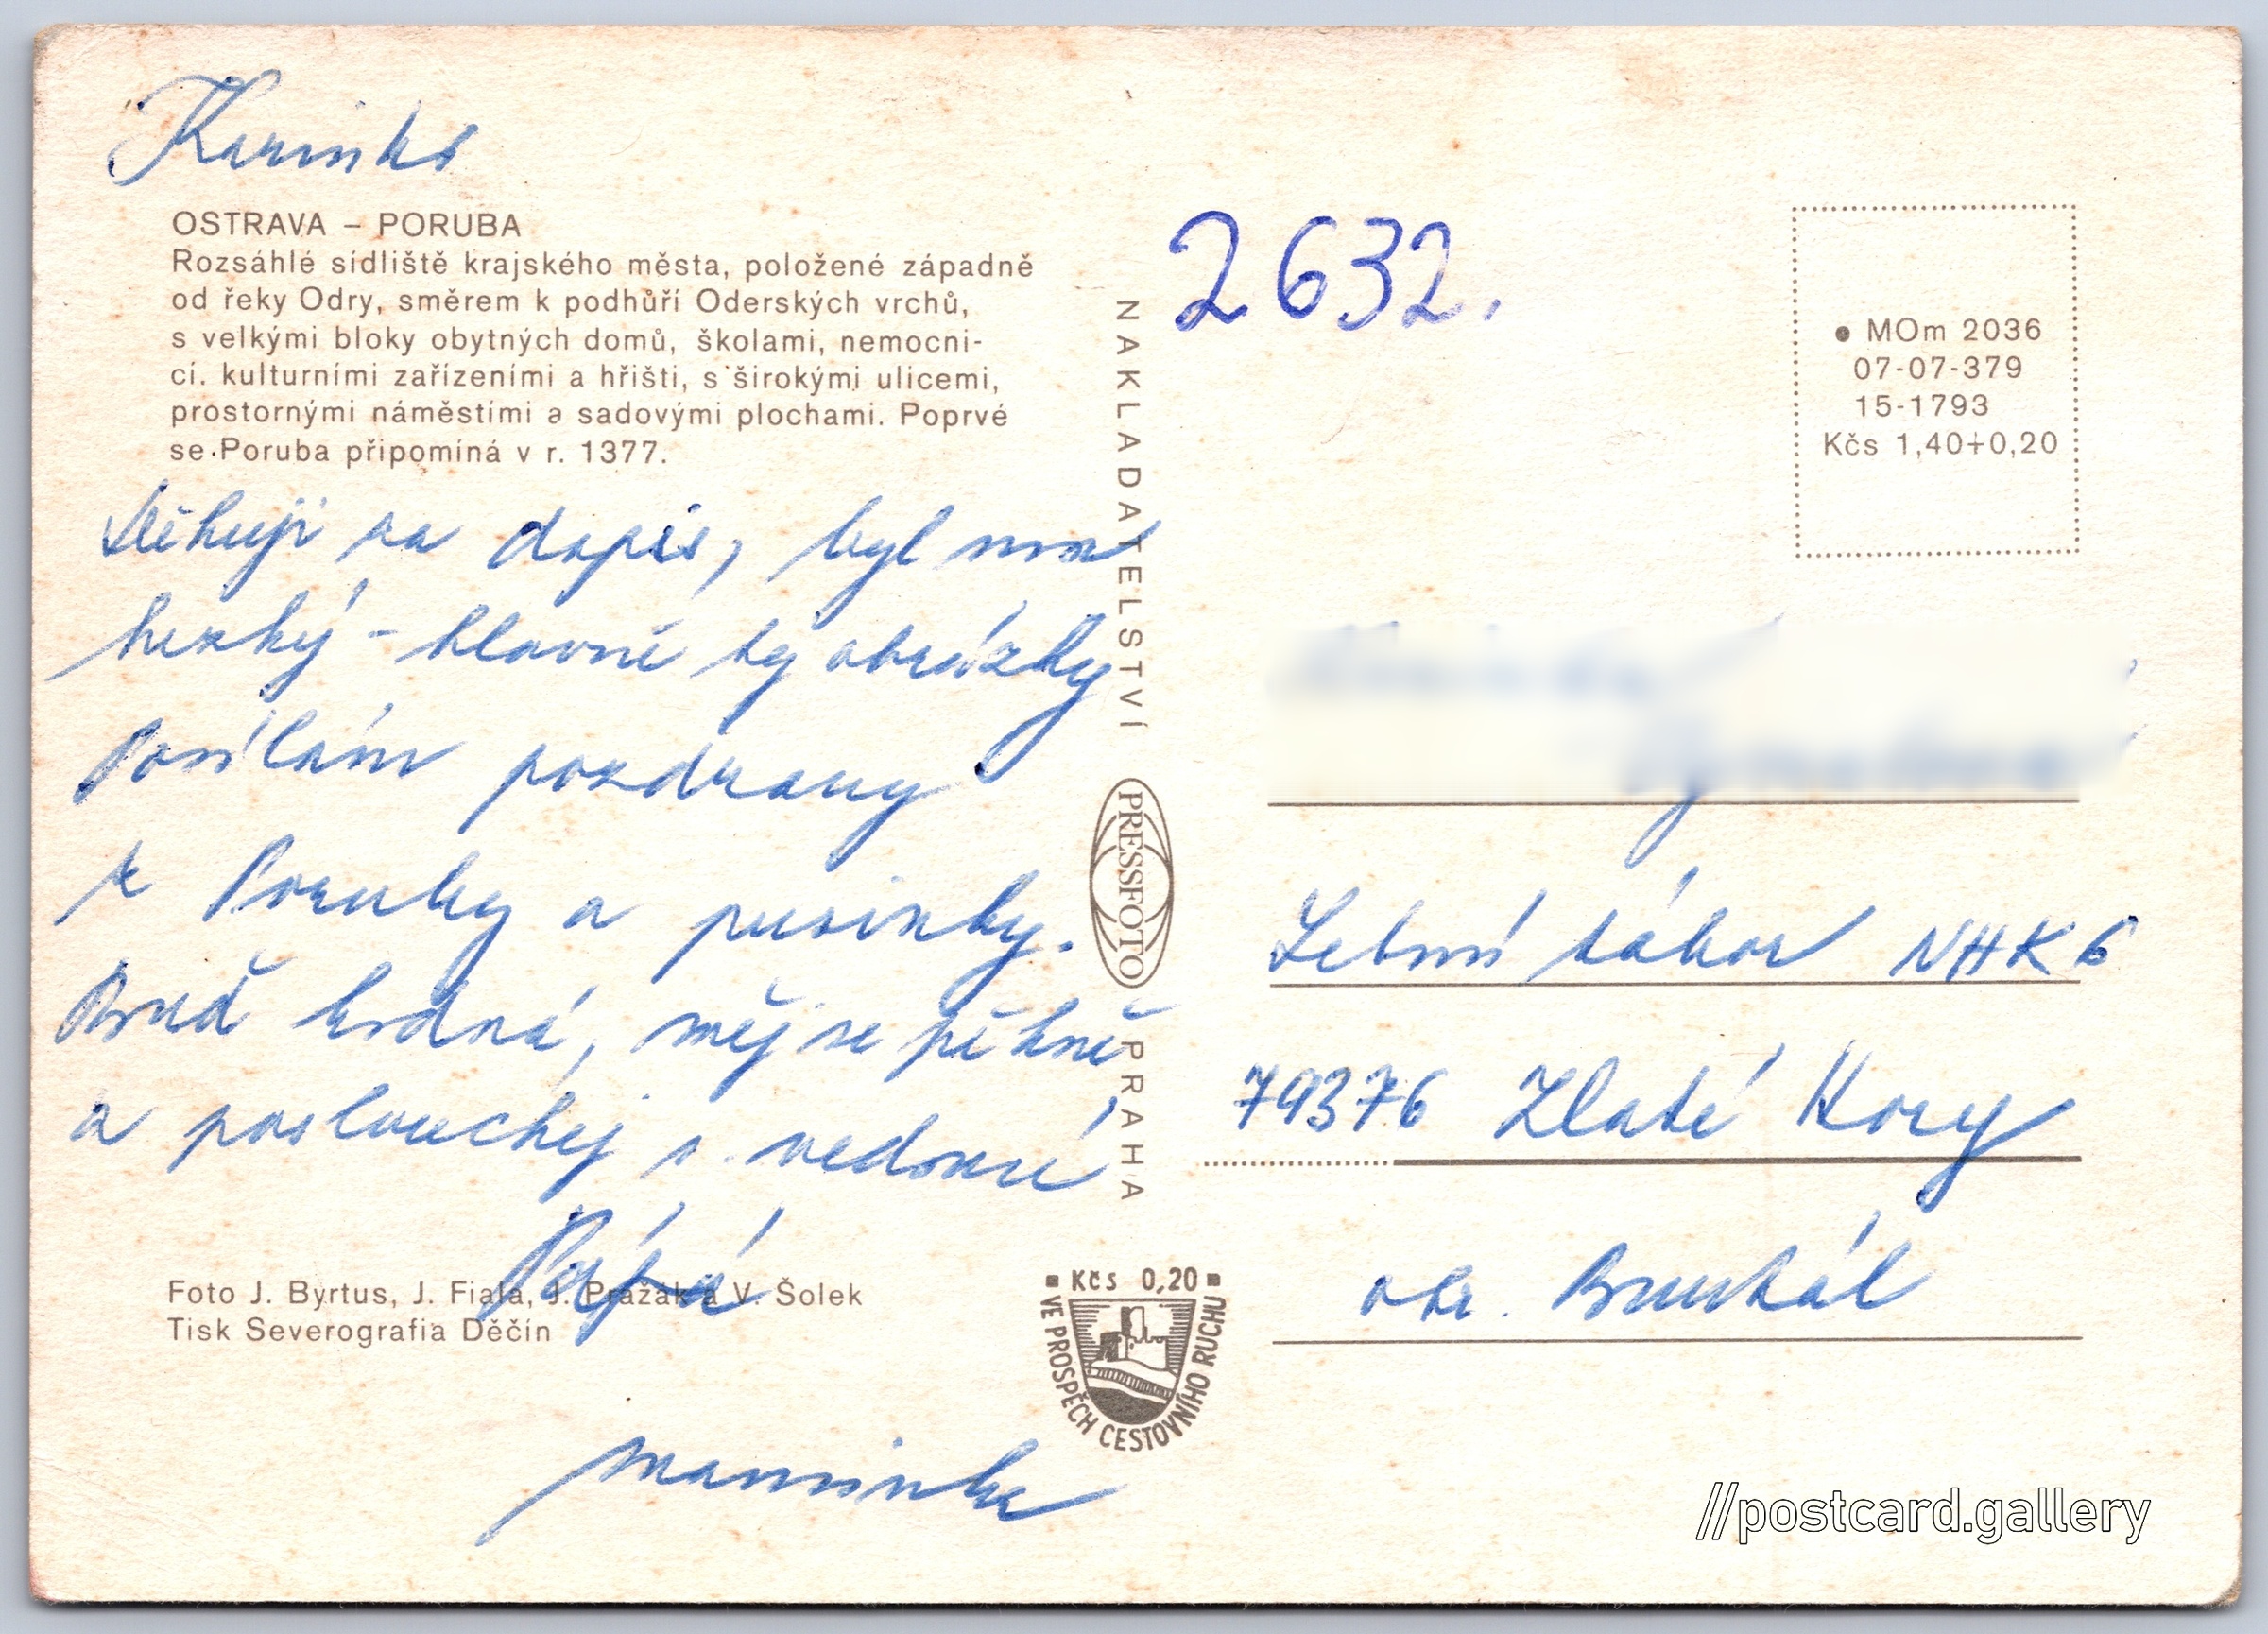 Karinko
OSTRAVA – PORUBA
Rozsáhlé sídliště krajského města, položené západně
od řeky Odry, směrem k podhůří Oderských vrchů,
s velkými bloky obytných domů, školami, nemocni-
cí. kulturními zařízeními a hřišti, s širokými ulicemi,
prostornými náměstími a sadovými plochami. Poprvé
se Poruba připomíná v r. 1377.
Děkuji za dopis, byl moc
hezký - hlavně ty obrázky
Posílám pozdravy
z Poruby a pusinky.
Buď hodná, měj se pěkně
a poslouchej s. vedoucí
Pápá
Foto J. Byrtus, J. Fiala, J. Pražák a V. Šolek
Tisk Severografia Děčín
maminka
NAKLADATELSTVÍ
PRESSFOTO
PRAHA
Kčs 0,20
VE PROSPĚCH CESTOVNÍHO RUCHU
2632.
MOm 2036
07-07-379
15-1793
Kčs 1,40+0,20
Letní tábor NHKG
79376 Zlaté Hory
okr. Bruntál
//postcard.gallery